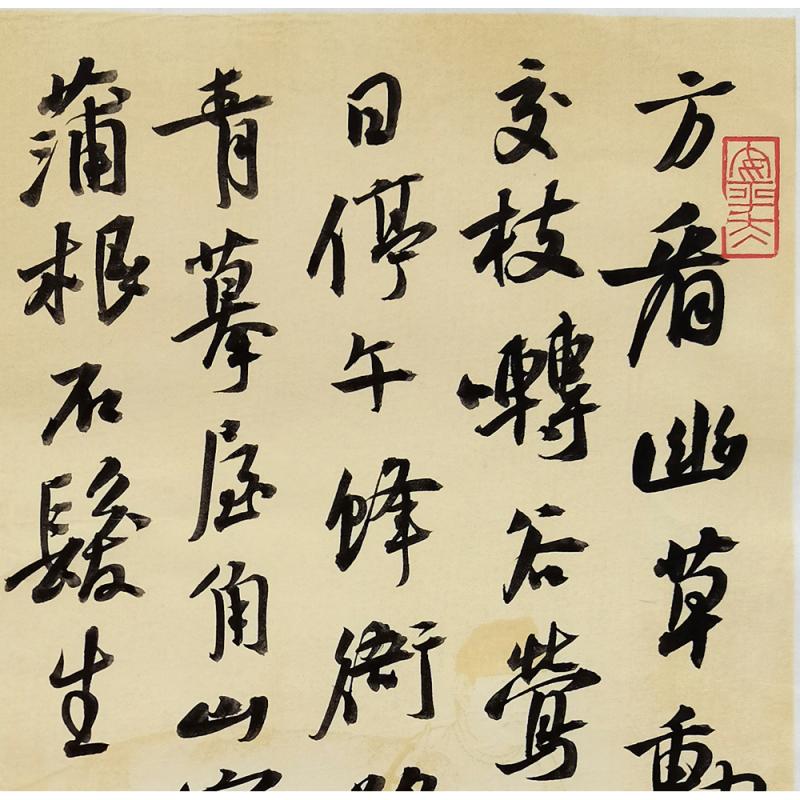 方看幽草動
交枝轉谷鶯
日停午蜂衙
青摹屋角山
蒲根石髮生